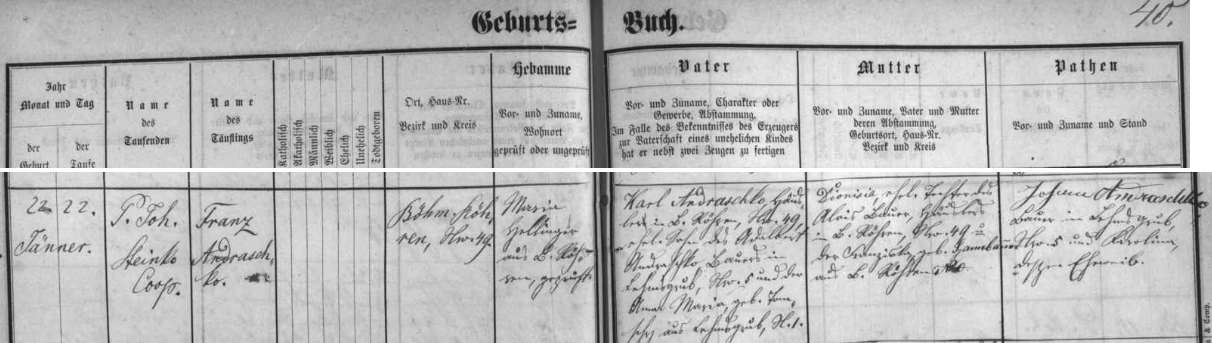 Geburts= Buch.
40.
Jahr
Monat und Tag
der
Geburt
der
Taufe
Name
des
Taufenden
Name
des
Täuflings
Katholisch
Akatholisch
Männlich
Weiblich
Ehelich
Unehelich
Todtgeboren
Ort, Haus-Nr.
Bezirk und Kreis
Hebamme
Vor- und Zuname,
Wohnort
geprüft oder ungeprüft
Vater
Vor- und Zuname, Charakter oder
Gewerbe, Abstammung,
Im Falle des Bekenntnisses des Erzeugers
zur Vaterschaft eines unehelichen Kindes
hat er nebst zwei Zeugen zu fertigen
Mutter
Vor- und Zuname, Vater und Mutter
deren Abstammung,
Geburtsort, Haus-Nr.
Bezirk und Kreis
Pathen
Vor- und Zuname und Stand
22 22.
Jänner.
P. Joh.
Steinko
Coop.
Franz
Andrasch-
ko.
Böhm. Röh-
ren, Nro. 49.
Maria
Hellinger
aus B. Röh-
ren, geprüft.
Karl Andraschko, Häus-
ler in B. Röhren, Nro. 49,
ehel. Sohn des Adalbert
Andraschko, Bauers in
Lehmgrub, Nro. 5 und der
Anna Maria, geb. Tom-
schy aus Lehmgrub, N. 1.
Dionisia, ehel. Tochter des
Alois Bauer, Häuslers
in B. Röhren, Nro. 49 u.
der Franziska, geb.
aus B. Röhren
Johann Andraschko
Bauer in Lehmgrub,
Nro. 5 und Karolina,
dessen Eheweib.